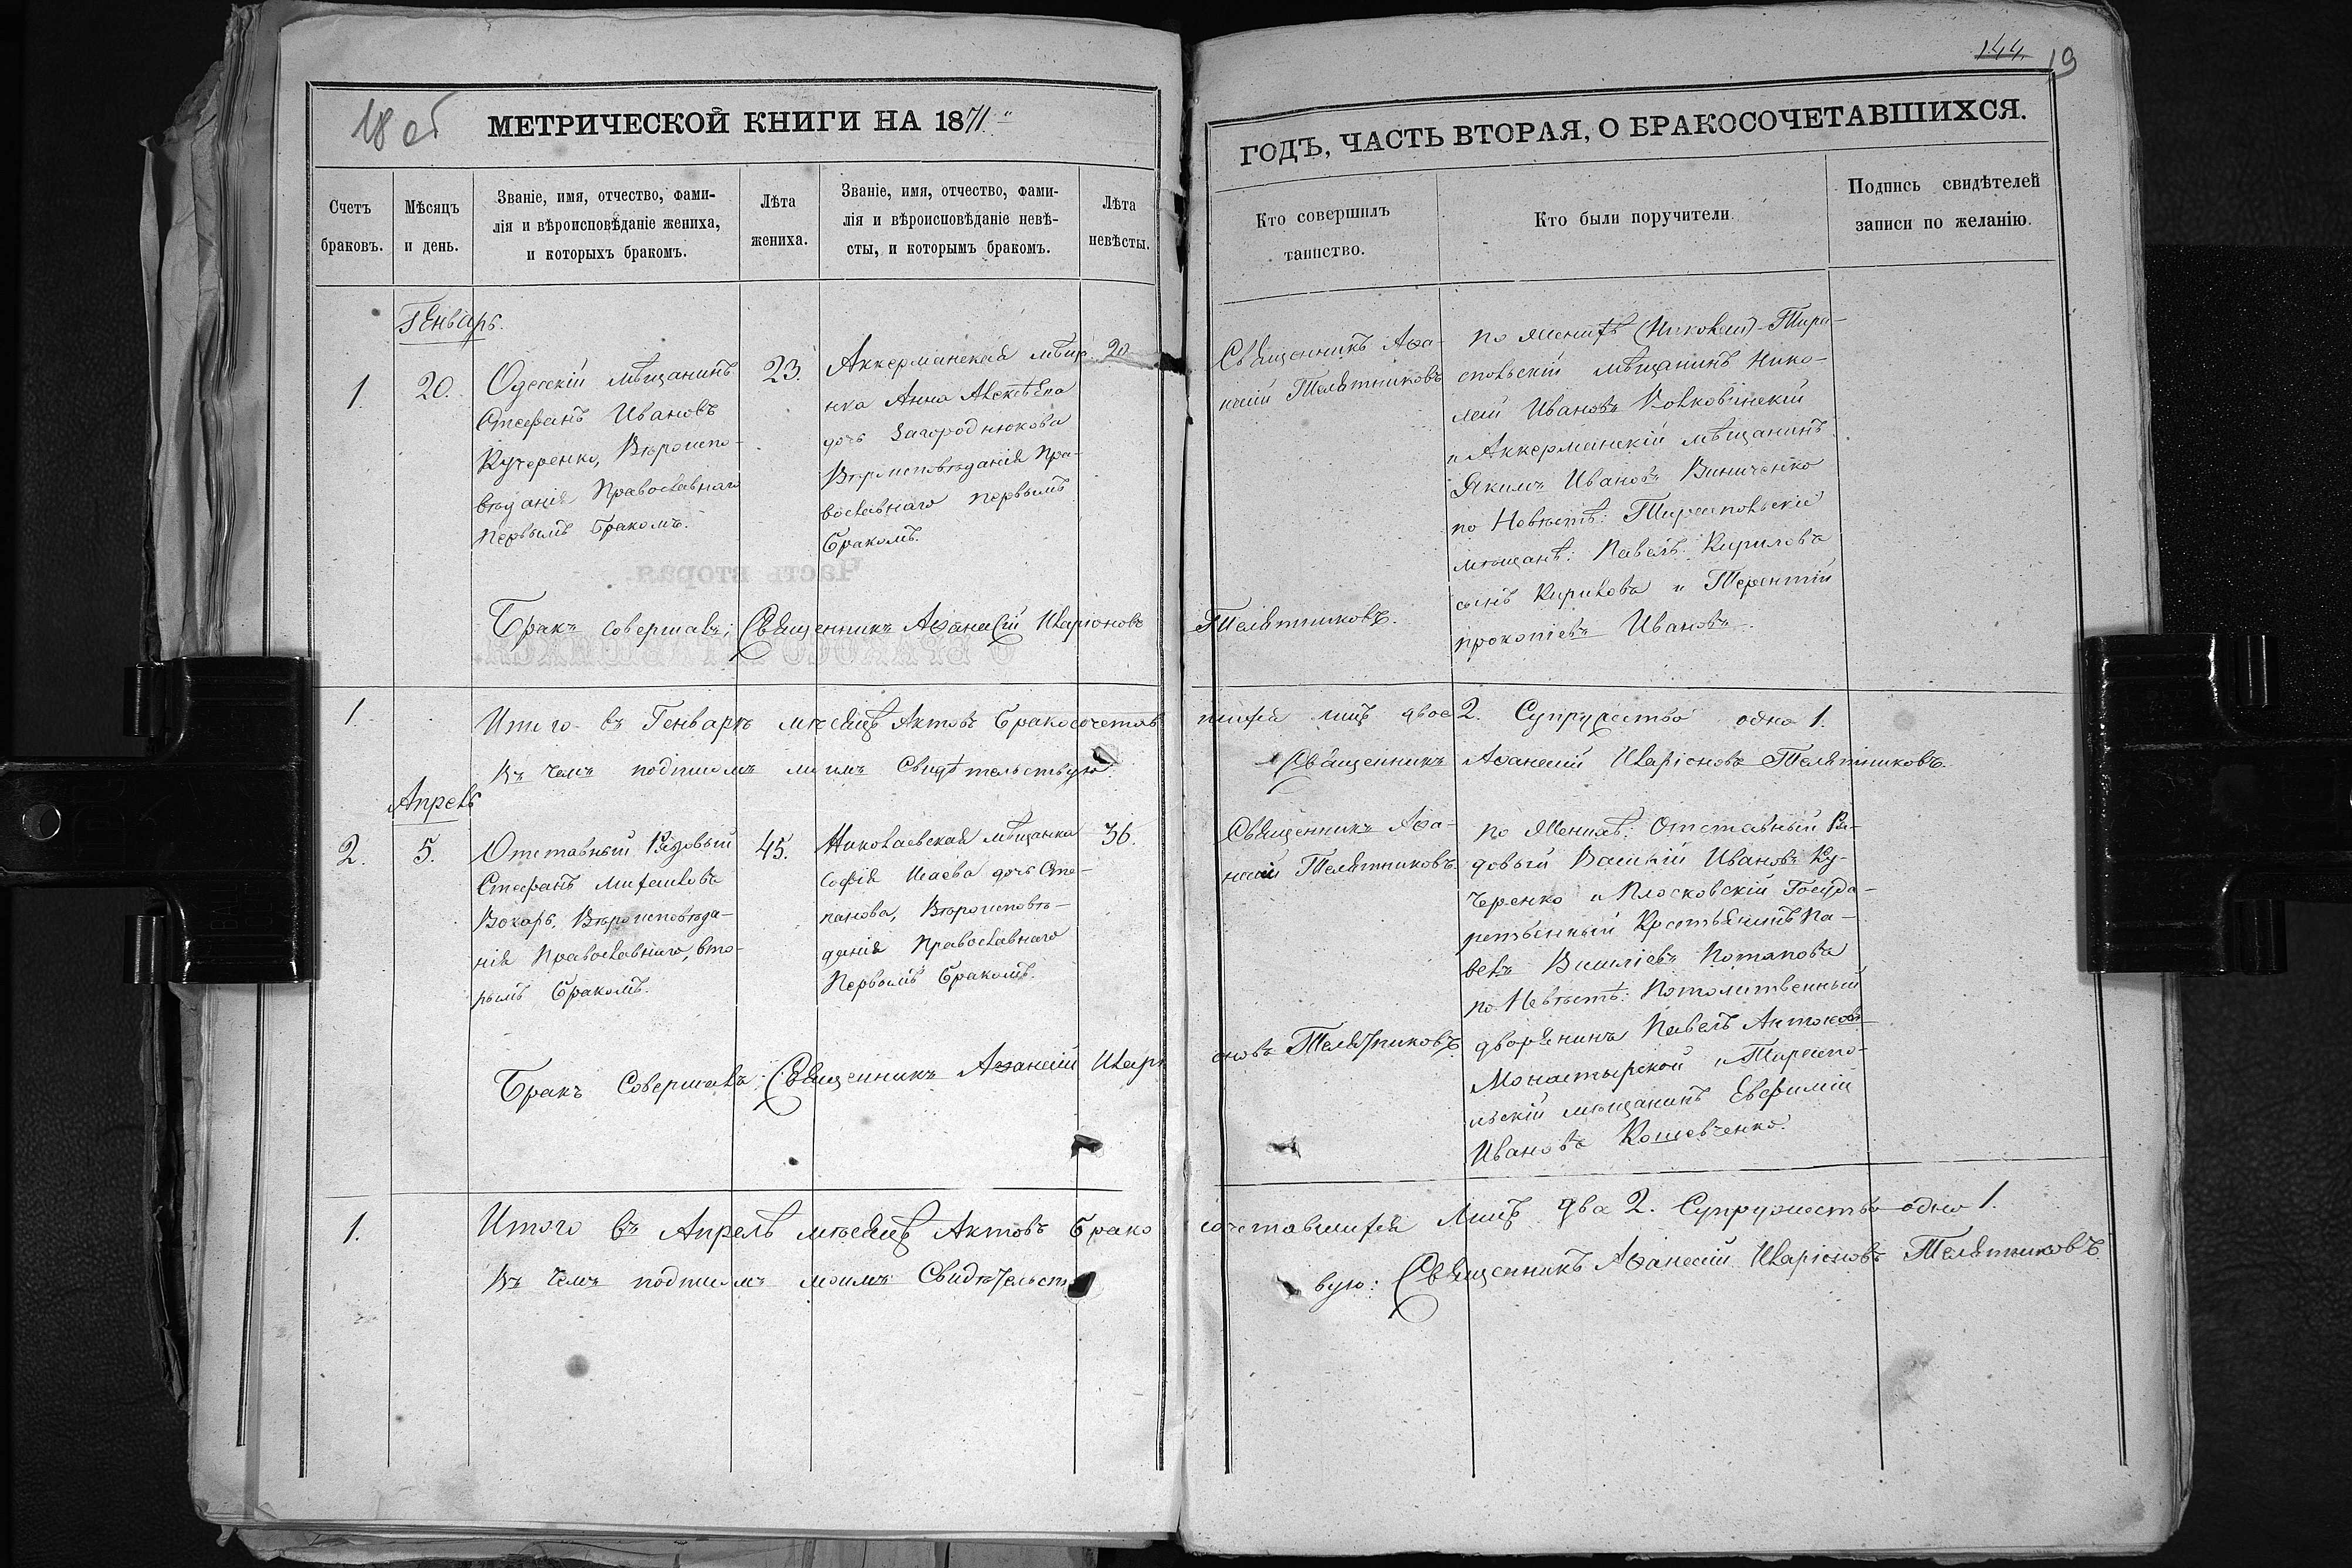 18 об
МЕТРИЧЕСКОЙ КНИГИ НА 1871
144. 19
ГОДЪ, ЧАСТЬ ВТОРАЯ, О БРАКОСОЧЕТАВШИХСЯ.
Счетъ
браковъ.
Мѣсяцъ
и день.
Званіе, имя, отчество, фами-
лія и вѣроисповѣданіе жениха,
и которыхъ бракомъ.
Лѣта
жениха.
Званіе, имя, отчество, фами-
лія и вѣроисповѣданіе невѣ-
сты, и которымъ бракомъ.
Лѣта
невѣсты.
Кто совершилъ
таинство.
Кто были поручители.
Подпись свидѣтелей
записи по желанію.
Генварь.
1.
20.
Одесскій мѣщанинъ
Стефанъ Ивановъ
Кучеренко, Вѣроиспо-
вѣданія Православнаго
Первымъ бракомъ.
23.
Аккерманская мѣща-
нка Анна Алексѣева
дочь Загороднюкова
Вѣроисповѣданія Пра-
вославнаго первымъ
бракомъ.
20
Священникъ Аѳа-
насій Телятниковъ
по Женихѣ (Николаи) Тира-
спольскій мѣщанинъ Нико-
лай Ивановъ Волковинскій
и Аккерманскій мѣщанинъ
Якимъ Ивановъ Виниченко
по Невѣстѣ: Тираспольскіе
мѣщанѣ: Павелъ Кириловъ
сынъ Кирилова и Терентій
прокопіевъ Ивановъ.
Бракъ совершалъ; Священникъ Аѳанасій Иларіоновъ Телятниковъ.
1. Итого въ Генварѣ мѣсяцѣ Актовъ бракосочетав шихся лицъ двое 2. Супружество одно 1.
Въ чемъ подписомъ моимъ Свидѣтельствую. Священникъ Аѳанасій Иларіоновъ Телятниковъ.
Апрель
2.
5.
Отставный Рядовый
Стефанъ Михаиловъ
Бокарь, Вѣроисповѣда-
нія Православнаго, вто-
рымъ бракомъ.
45.
Николаевская мѣщанка
Софія Исаева дочь Сте-
панова, Вѣроисповѣ-
данія Православнаго
Первымъ бракомъ.
36.
Священникъ Аѳа-
насій Телятниковъ
по Женихѣ: Отставный Ря-
довый Василій Ивановъ Ку-
черенко и Плосковскій Госуда-
рственный Крестьянинъ Па-
велъ Василіевъ Потапова
по Невѣстѣ: Потомственный
дворянинъ Павелъ Антонов
Монастырской и Тираспо-
льскій мѣщанинъ Евфимій
Ивановъ Кошевченко.
Бракъ Совершалъ: Священникъ Аѳанасій Иларі оновъ Телятниковъ.
1. Итого въ Апрелѣ мѣсяцѣ Актовъ брако сочетавшихся Лицъ два 2. Супружество одно 1.
Въ чемъ подписомъ моимъ Свидѣтельст вую: Священникъ Аѳанасій Иларіоновъ Телятниковъ